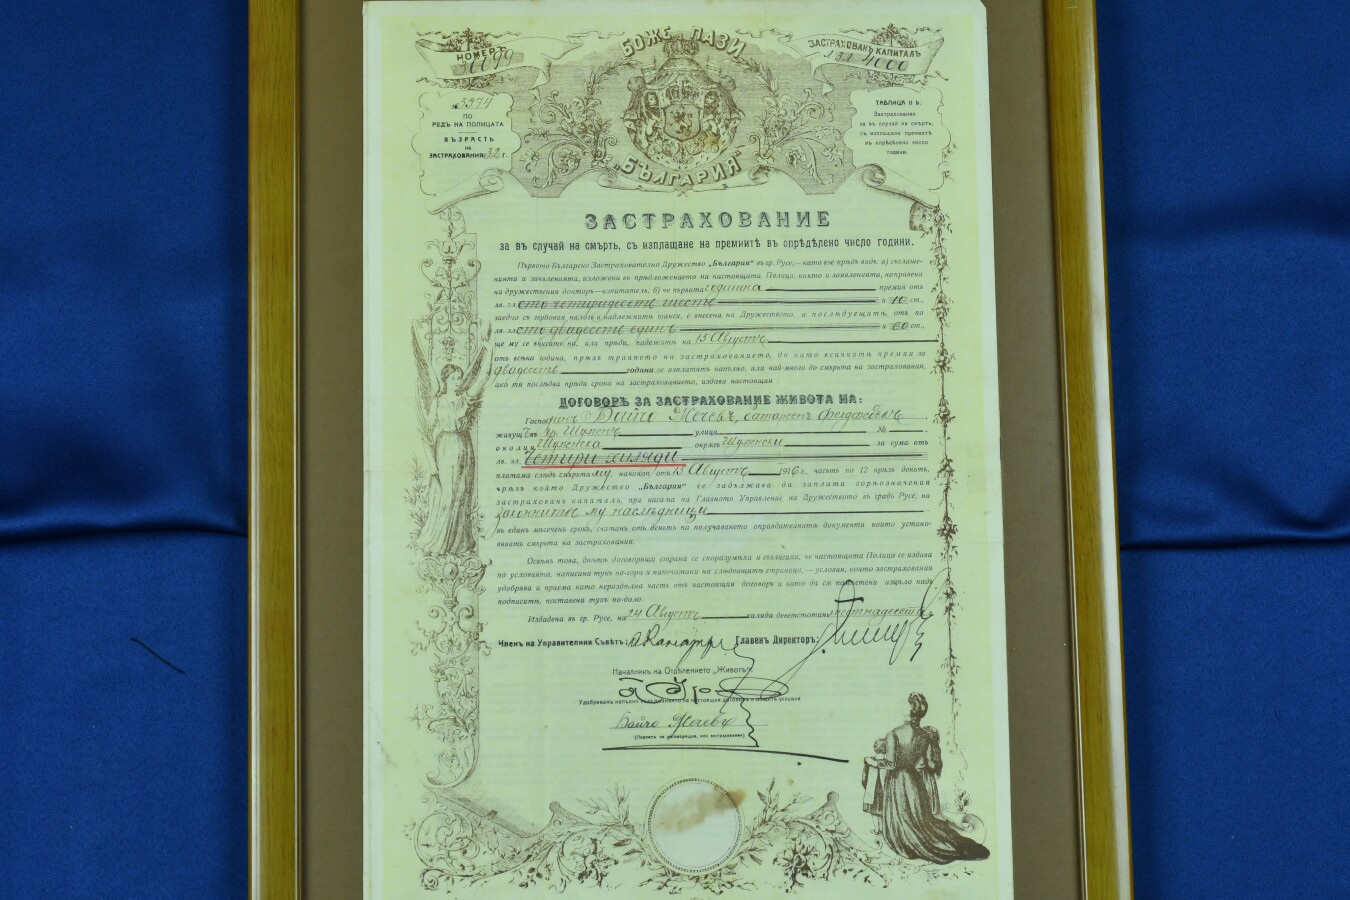 НОМЕРЪ
БОЖЕ ПАЗИ
ЗАСТРАХОВАНЪ КАПИТАЛЪ
4000
№ 3374
ПО
РЕДЪ НА ПОЛИЦАТА
ВЪЗРАСТЬ
НА
ЗАСТРАХОВАНИЯ 32 г.
ТАБЛИЦА II Ь.
Застраховка
за въ случай на смърть,
съ изплащане премиитѣ
въ опрѣдѣлено число
години.
„БЪЛГАРИЯ“
ЗАСТРАХОВАНИЕ
за въ случай на смърть, съ изплащане на премиитѣ въ опрѣдѣлено число години.
Първото Българско Застрахователно Дружество „България“ въ гр. Русе,— като взе прѣдъ видъ: а) съглаше-
нията и заявленията, изложени въ прѣдложението на настоящата Полица, както и заявленията, направени
на дружествения докторъ—изпитатель; б) че първата годишна премия отъ
лв. зл. сто четиридесеть шесть и 10 ст.,
заедно съ гербовия налогъ и надлежнитѣ такси, е внесена на Дружеството, а послѣдующитѣ, отъ по
лв. зл. сто двадесеть единъ и 60 ст.,
ще му се внисатъ на, или прѣди, падежътъ на 15 Августъ
отъ всѣка година, прѣзъ траянето на застрахованието, до като всичкитѣ премии за
двадесеть години се изплатятъ напълно, или най-много до смъртьта на застрахования,
ако тя послѣдва прѣди срока на застрахованието, издава настоящия
ДОГОВОРЪ ЗА ЗАСТРАХОВАНИЕ ЖИВОТА НА:
Господинъ Жечевъ,
живущъ въ гр. Шуменъ улица №
околия Шуменска окрѫгъ Шуменски за сума отъ
лв. зл. Четири хиляди
платима слѣдъ смъртьта му, начиная отъ 15 Августъ 1916 г. часътъ по 12 прѣзъ деньтъ,
чрѣзъ който Дружество „България“ се задължава да заплати горѣозначения
застрахованъ капиталъ, при касата на Главното Управление на Дружеството въ градъ Русе, на
законнитѣ му наслѣдници
въ единъ мѣсеченъ срокъ, считанъ отъ деньтъ на получаването оправдателнитѣ документи които устано-
вяватъ смъртьта на застрахования.
Освѣнъ това, двѣтѣ договорящи страни се споразумѣха и съгласиха, че настоящата Полица се издава
по условията, написани тукъ по-горѣ и напечатани на слѣдващитѣ страници,— условия, които застрахования
удобрява и приема като нераздѣлна часть отъ настоящия договоръ и като да сѫ помѣстени изцѣло надъ
подписитѣ, поставени тукъ по-долу.
Издадена въ гр. Русе, на 24 Августъ хиляда деветстотинъ шестнадесета
Членъ на Управителния Съвѣтъ: Главенъ Директоръ:
Началникъ на Отдѣлението „Животъ“:
Удобрявамъ напълно съдържанието на настоящия договоръ и общитѣ условия
Байчо Жечевъ
(Подписъ на договорящия, или застрахования)